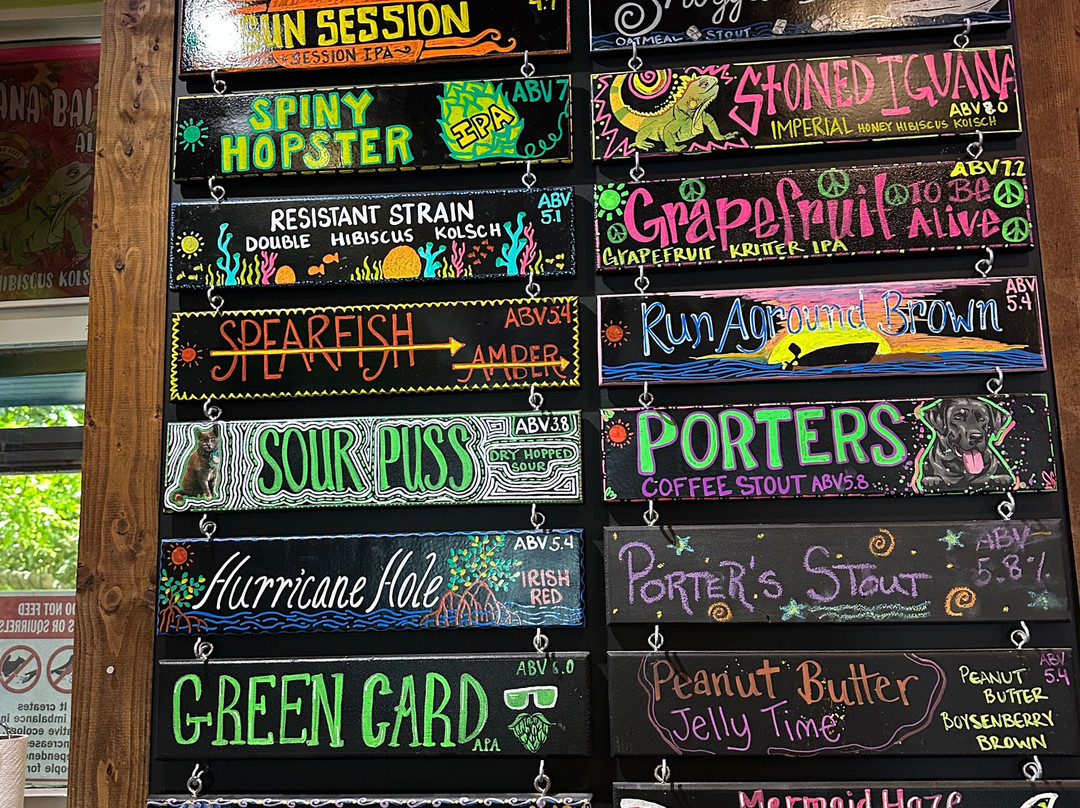 4.7
SUN SESSION
SESSION IPA
SPINY
HOPSTER
IPA
ABV 7
RESISTANT STRAIN
DOUBLE HIBISCUS KOLSCH
ABV
5.1
SPEARFISH
AMBER
ABV 5.4
SOUR PUSS
ABV 3.8
DRY HOPPED
SOUR
Hurricane Hole
ABV 5.4
IRISH
RED
GREEN CARD
APA
ABV 6.0
OATMEAL STOUT
STONED IGUANA
ABV 8.0
IMPERIAL HONEY HIBISCUS KOLSCH
ABV 7.2
Grapefruit TO BE
Alive
GRAPEFRUIT KRITTER IPA
Run Aground Brown
ABV
5.4
PORTERS
COFFEE STOUT ABV 5.8
PORTER'S STOUT
ABV
5.8%
Peanut Butter
Jelly Time
ABV
5.4
PEANUT
BUTTER
BOYSENBERRY
BROWN
Mermaid Haze
ANA BAI
AL
HIBISCUS KOLS
DO NOT FEED
S OR SQUIRRELS
it creates
imbalance in